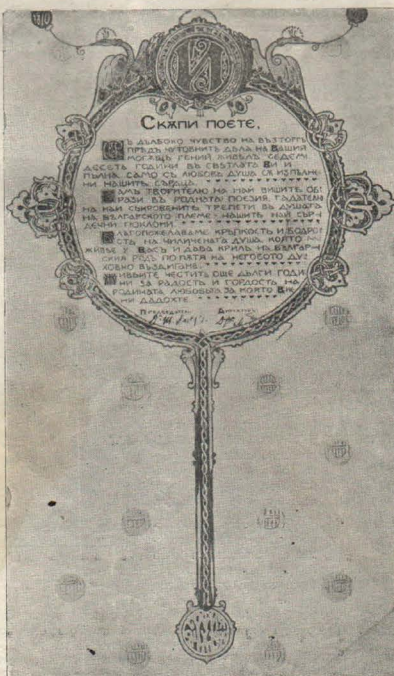 1870
И
СКѪПИ ПОЕТЕ,
СЪ ДЪЛБОКО ЧУВСТВО НА ВЪЗТОРГЪ
ПРЕДЪ ЧУТОВНИТѢ ДѢЛА НА ВАШИЯ
МОГѪЩЪ ГЕНИЙ ЖИВѢЛЪ СЕДЕМ
ДЕСЕТЬ ГОДИНИ ВЪ СВѢТЛАТА ВИ И
ПЪЛНА САМО СЪ ЛЮБОВЬ ДУША СѪ ИЗПЪЛНЕ-
НИ НАШИТѢ СЪРДЦА.
ВАМЪ ТВОРИТЕЛЮ НА НАЙ ВИШИТѢ ОБ-
РАЗИ ВЪ РОДНАТА ПОЕЗИЯ, ГАДАТЕЛЮ
НА НАЙ СЪКРОВЕНИТѢ ТРЕПЕТИ ВЪ ДУШАТА
НА БЪЛГАРСКОТО ПЛЕМЕ - НАШИТѢ НАЙ СЪР-
ДЕЧНИ ПОКЛОНИ.
БЛАГОПОЖЕЛАВАМЕ КРѢПКОСТЬ И БОДРОСТЬ
НА ДУША, КОЯТО
ЖИВѢЕ У ВАСЪ И ДАВА КРИЛѢ НА БЪЛГАР-
СКИЯ РОДЪ ПО ПѪТЯ НА НЕГОВОТО ДУ-
ХОВНО ВЪЗДИГАНЕ.
ЖИВѢЙТЕ ЧЕСТИТЪ ОЩЕ ДЪЛГИ ГОДИ-
НИ ЗА РАДОСТЬ И ГОРДОСТЬ НА
РОДИНАТА ЛЮБОВЬТА ЗА КОЯТО ВИЕ
НИ ДАДОХТЕ.
ПРЕДСЕДАТЕЛЬ